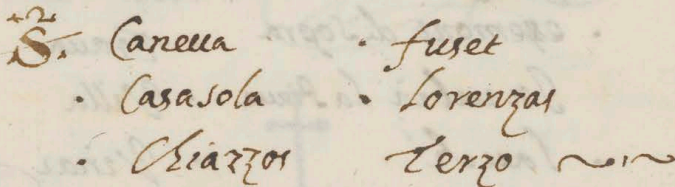 S. Caneua · fuset
· Casasola · Lorenzas
· Chiazzos Terzo